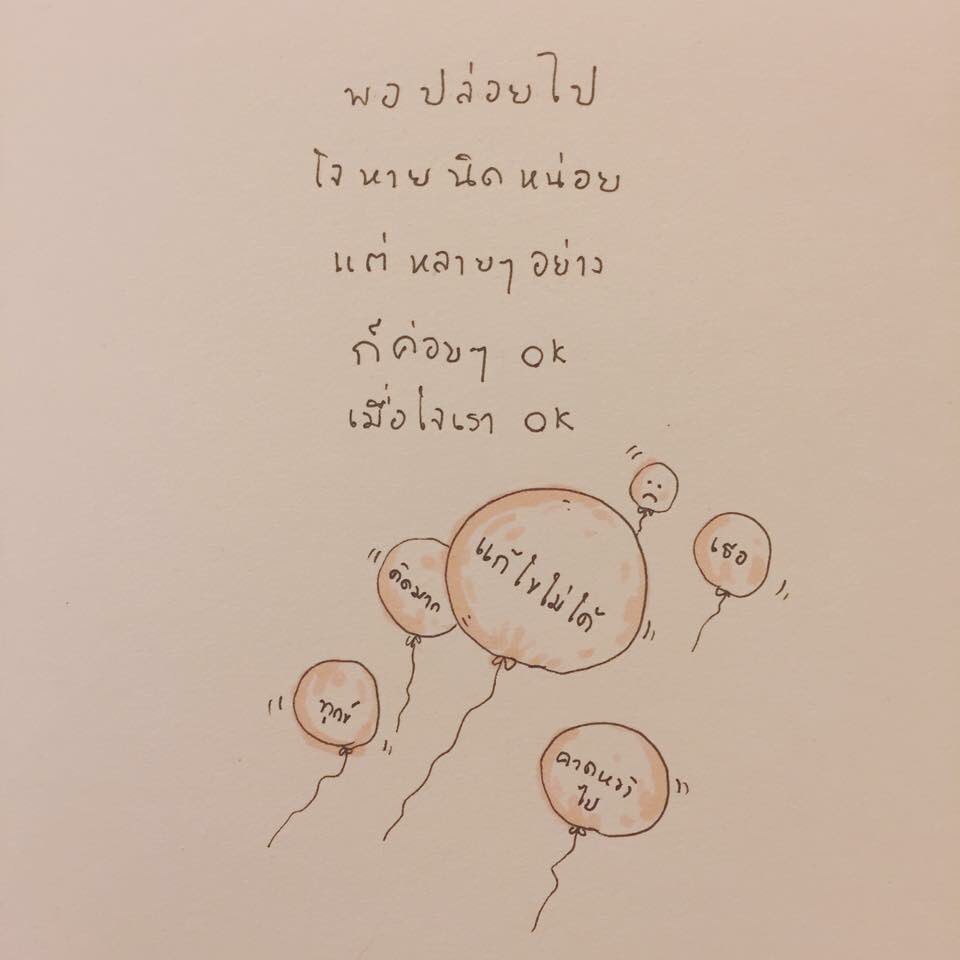 พอปล่อยไป
ใจหายนิดหน่อย
แต่หลายๆอย่าง
ก็ค่อยๆ OK
เมื่อใจเรา OK
เธอ
แก้ไขไม่ได้
คิดมาก
ทุกข์
คาดหวัง
ไป